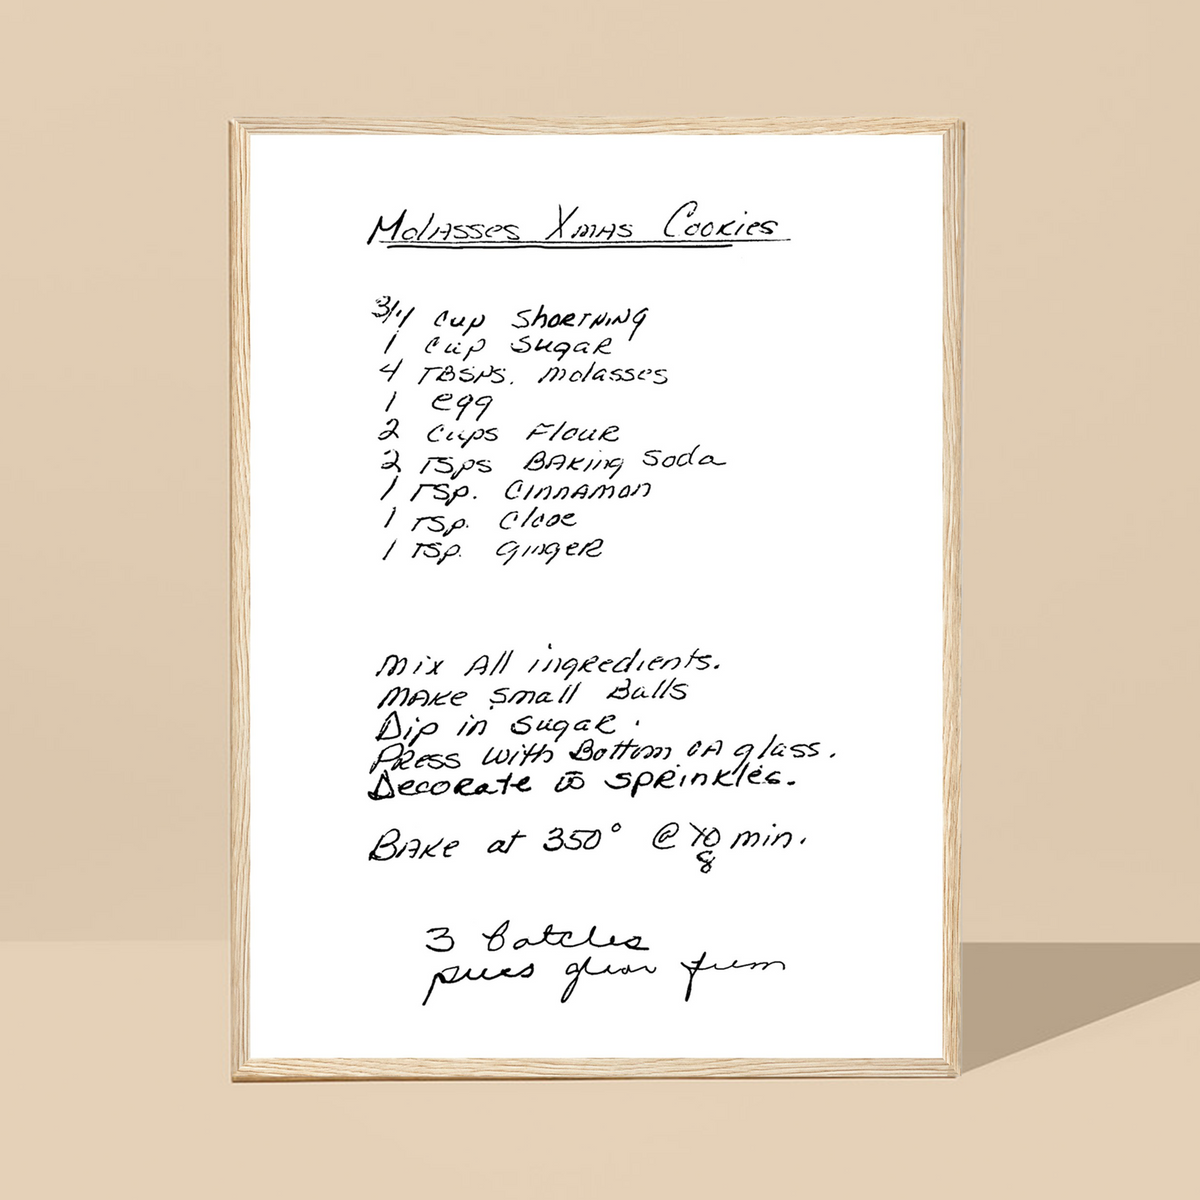 Molasses Xmas Cookies
3/4 cup shortning
1 cup sugar
4 TBSPS. molasses
1 egg
2 cups Flour
2 Tsps Baking Soda
1 Tsp. Cinnamon
1 Tsp. Clove
1 Tsp. Ginger
Mix All ingredients.
Make small Balls
Dip in sugar.
Press with Bottom of A glass.
Decorate w̄ sprinkles.
Bake at 350° @ 10 min.
8
3 batches